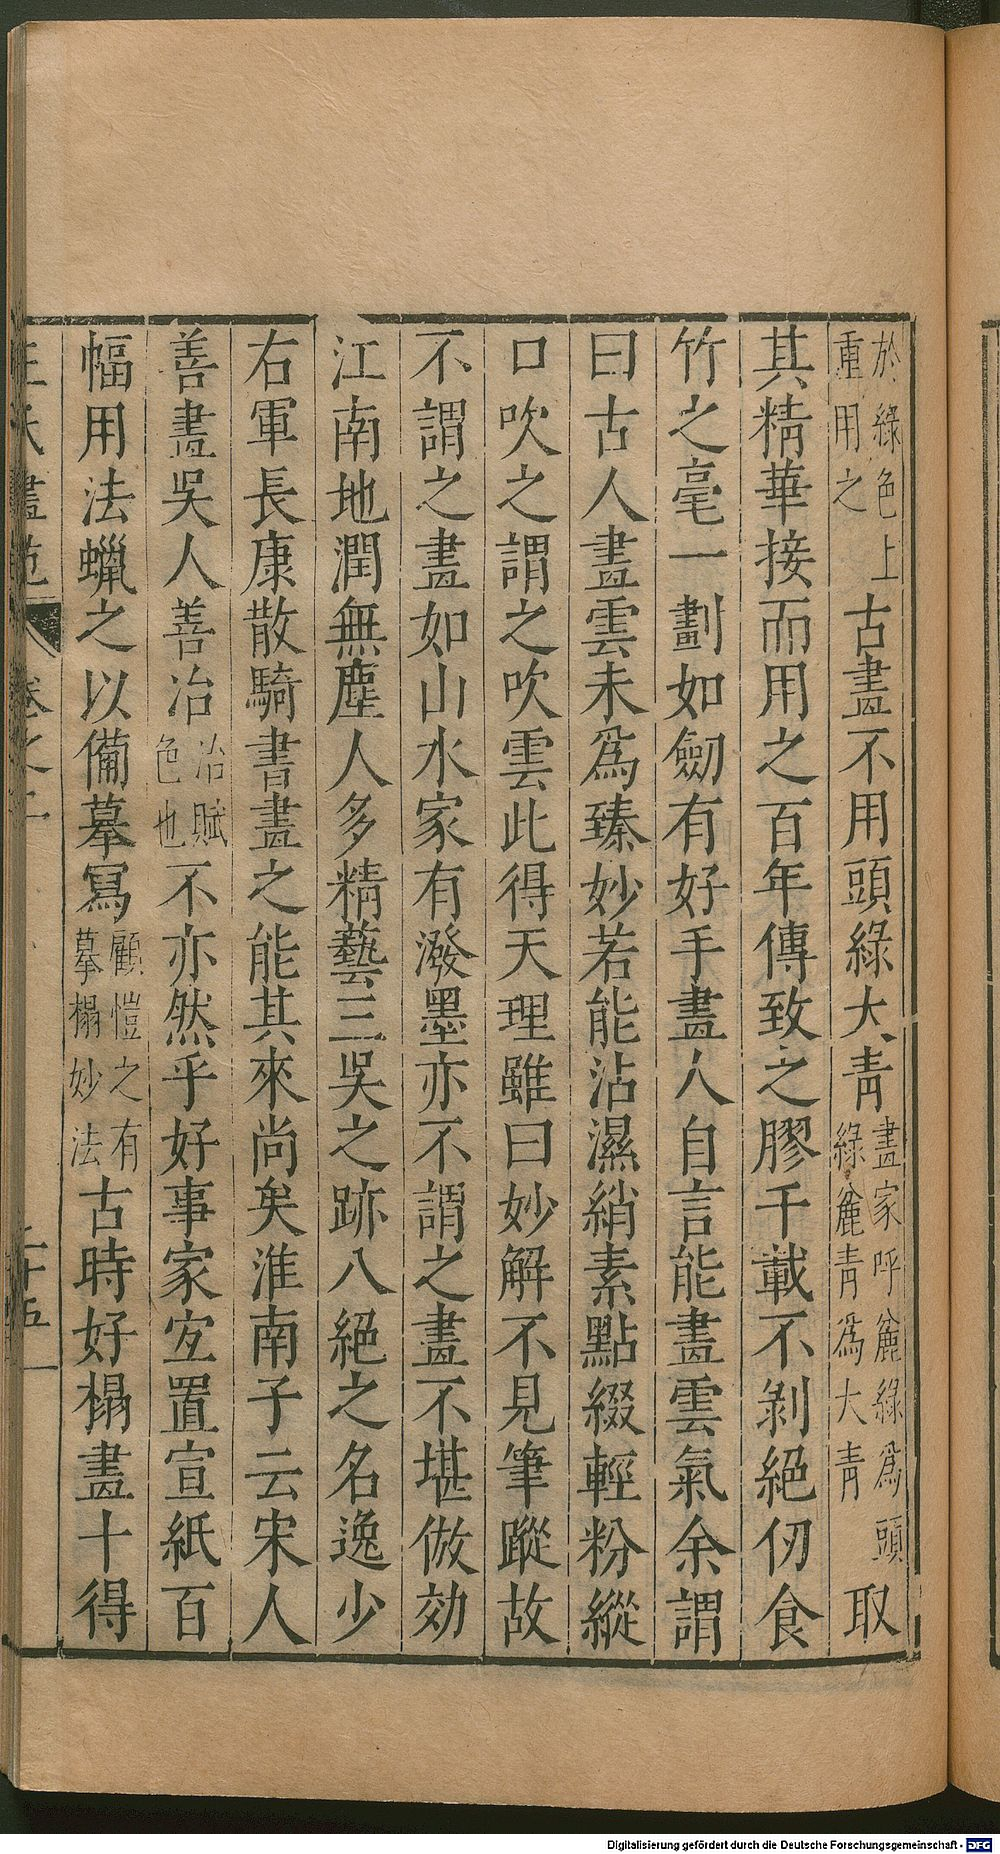 於綠色上重用之古畫不用頭綠大青畫家呼麄綠爲頭綠麄青爲大青取
其精華接而用之百年傳致之膠千載不剝絕仞食
竹之毫一劃如劒有好手畫人自言能畫雲氣余謂
曰古人畫雲未爲臻妙若能沾濕綃素點綴輕粉縱
口吹之謂之吹雲此得天理雖曰妙解不見筆蹤故
不謂之畫如山水家有潑墨亦不謂之畫不堪倣効
江南地潤無塵人多精藝三吳之跡八絕之名逸少
右軍長康散騎書畫之能其來尚矣淮南子云宋人
善畫吳人善冶冶賦色也不亦然乎好事家宐置宣紙百
幅用法蠟之以備摹寫顧愷之有摹榻妙法古時好榻畫十得
王氏畫苑 卷之 二十五
Digitalisierung gefördert durch die Deutsche Forschungsgemeinschaft - DFG